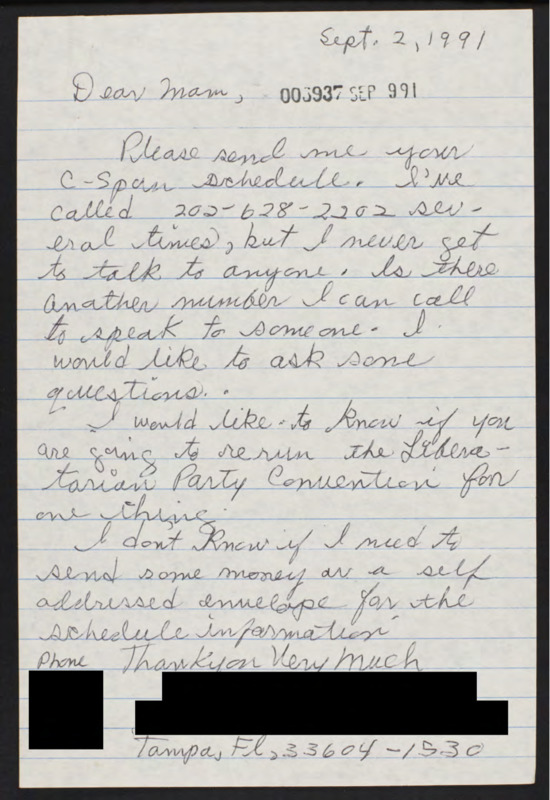 Sept. 2, 1991
Dear Mam, 003937 SEP 991
Please send me your
C-Span schedule. I've
called 202-628-2202 sev-
eral times, but I never get
to talk to anyone. Is there
another number I can call
to speak to someone. I
would like to ask some
questions..
I would like to know if you
are going to rerun the Libera-
tarian Party Convention for
one thing.
I dont know if I need to
send some money or a self
addressed envelope for the
schedule information
Phone Thankyou Very Much
Tampa, Fl, 33604-1530